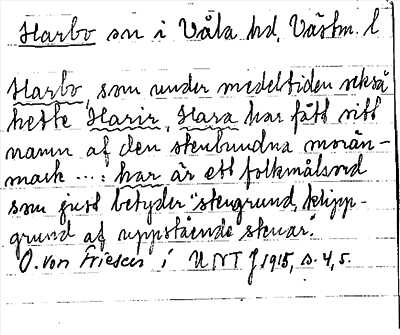 Harbo sn i Våla hd, Västm. l
Harbo, som under medeltiden också
hette Harir, Hara har fått sitt
namn af den stenbundna morän-
mark ...: har är ett folkmålsord
som just betyder "stengrund, klipp-
grund af uppstående stenar."
O. von Friesen i UNT J 1915, s. 4, 5.